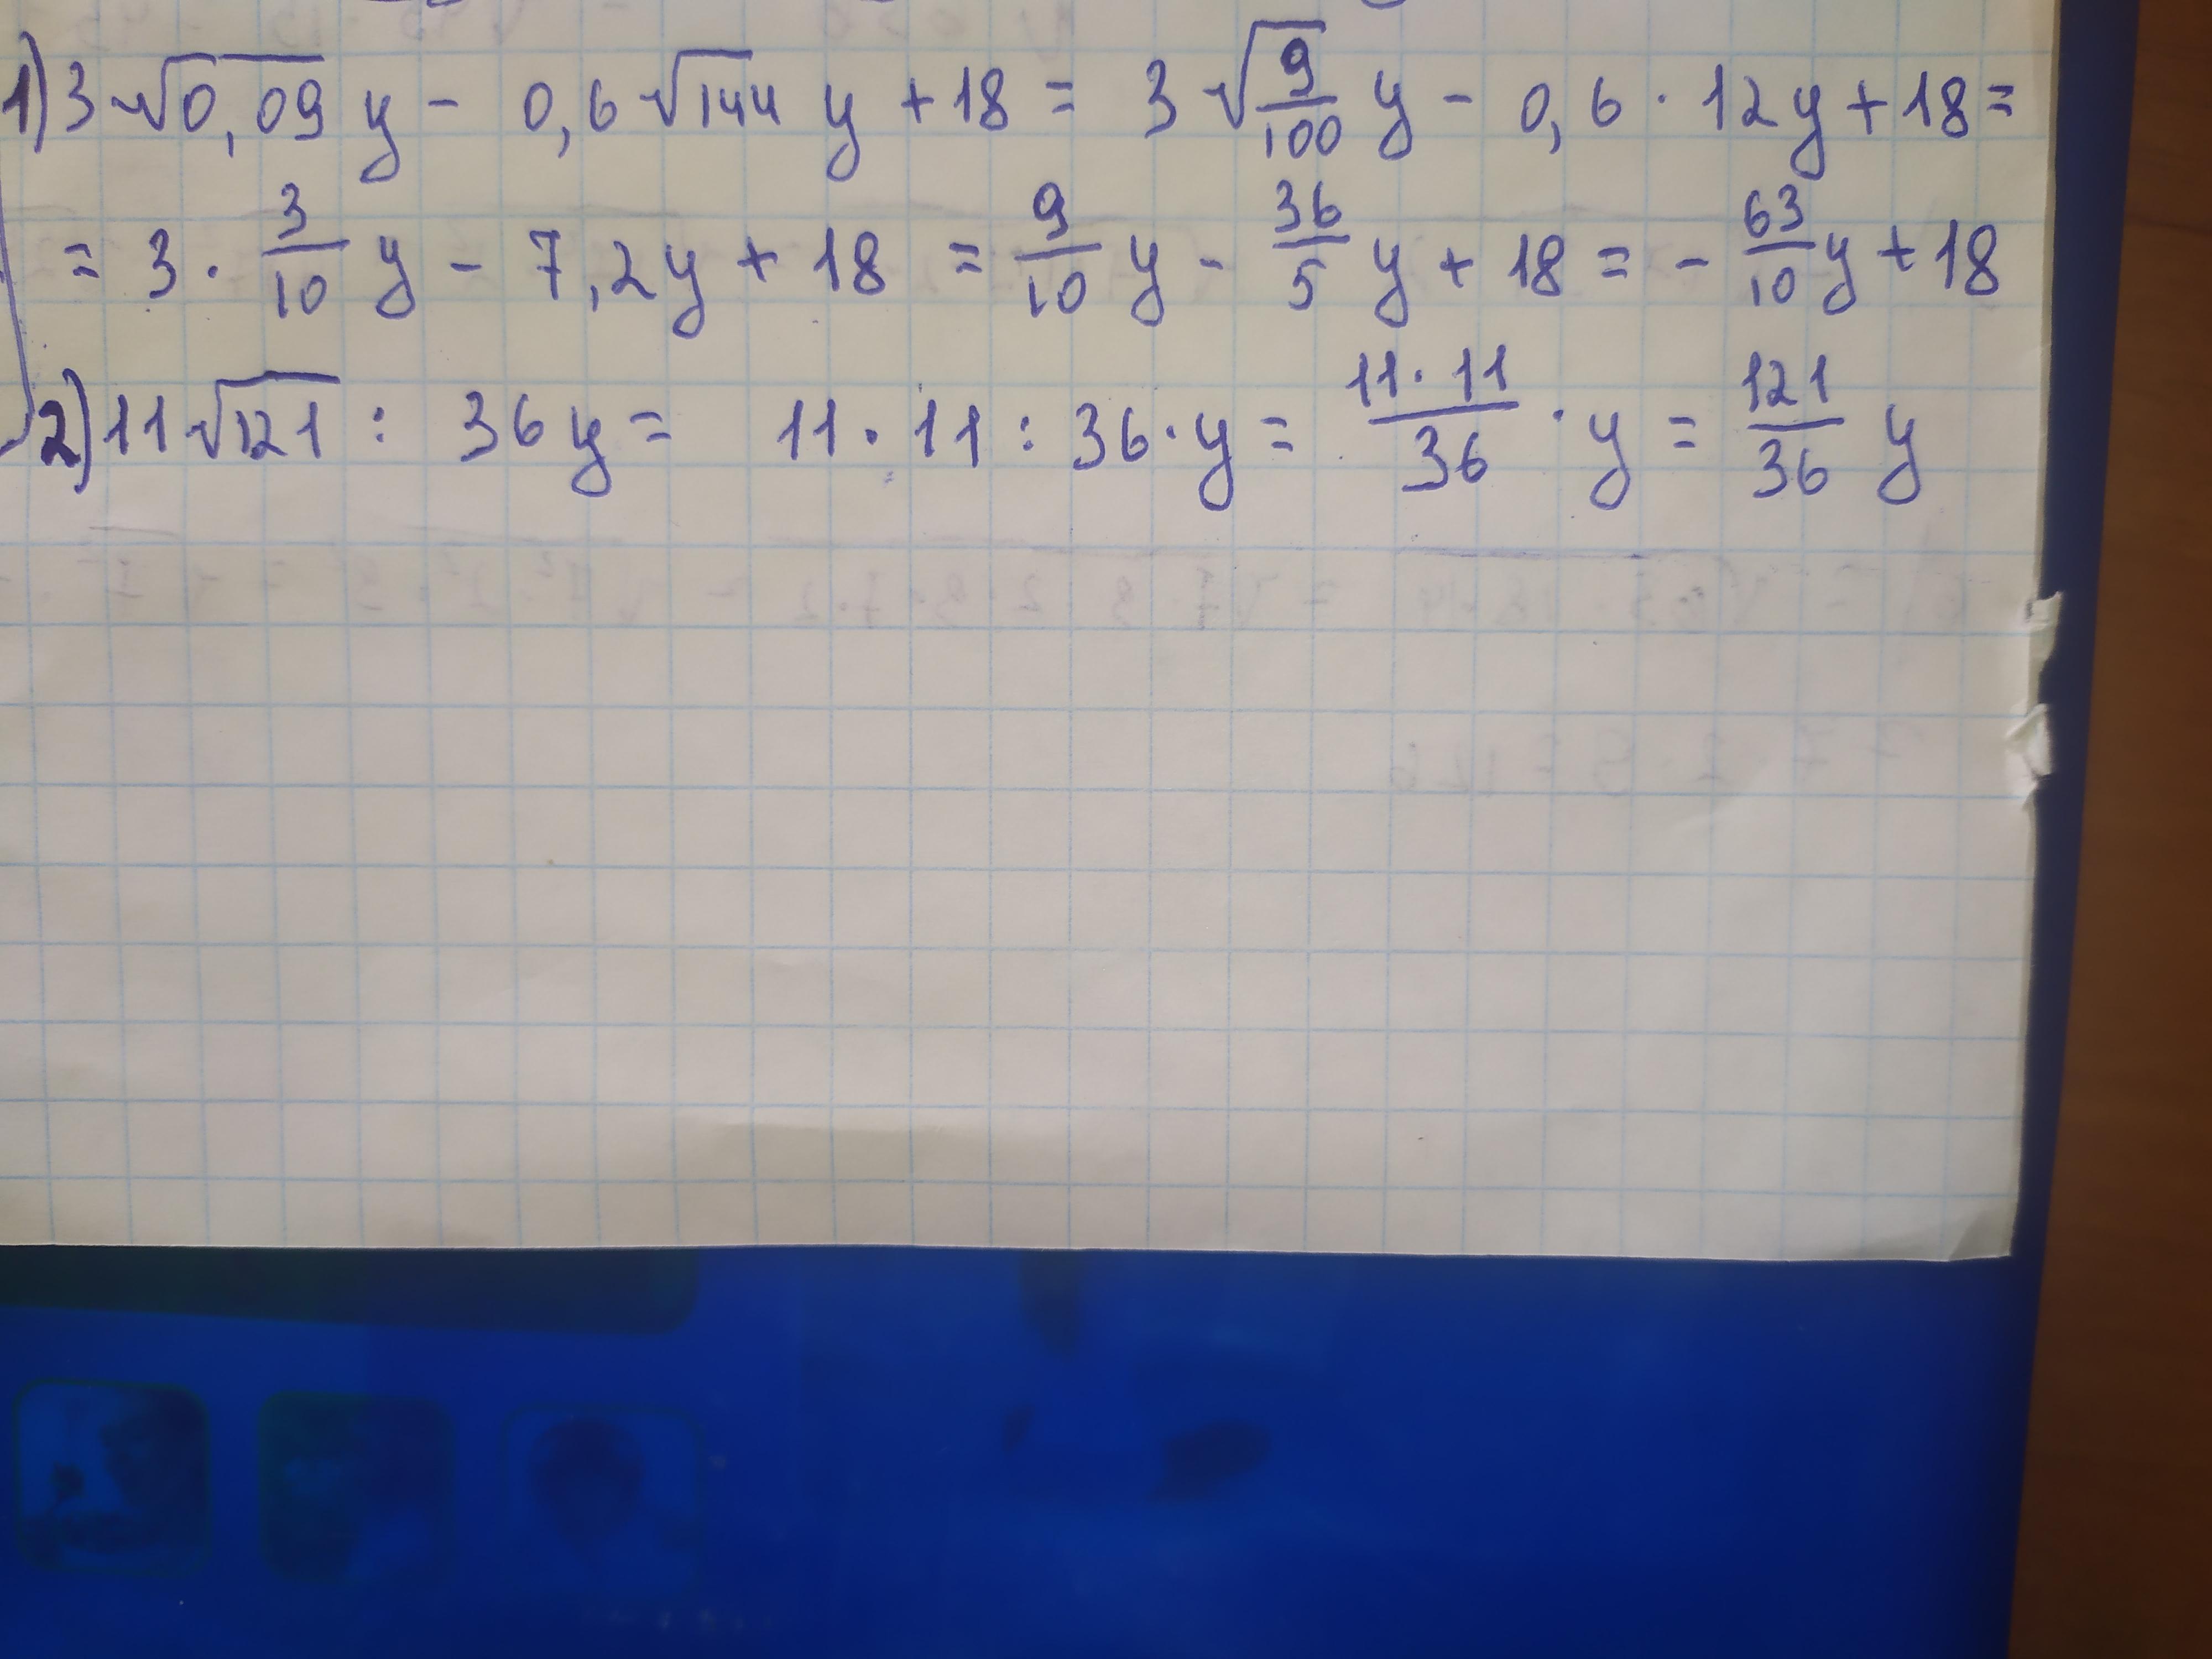 1) 3√0,09 y - 0,6√144 y + 18 = 3√9/100 y - 0,6 · 12y + 18 =
= 3 · 3/10 y - 7,2y + 18 = 9/10 y - 36/5 y + 18 = - 63/10 y + 18
2) 11√121 : 36y = 11 · 11 : 36 · y = 11 · 11/36 · y = 121/36 y